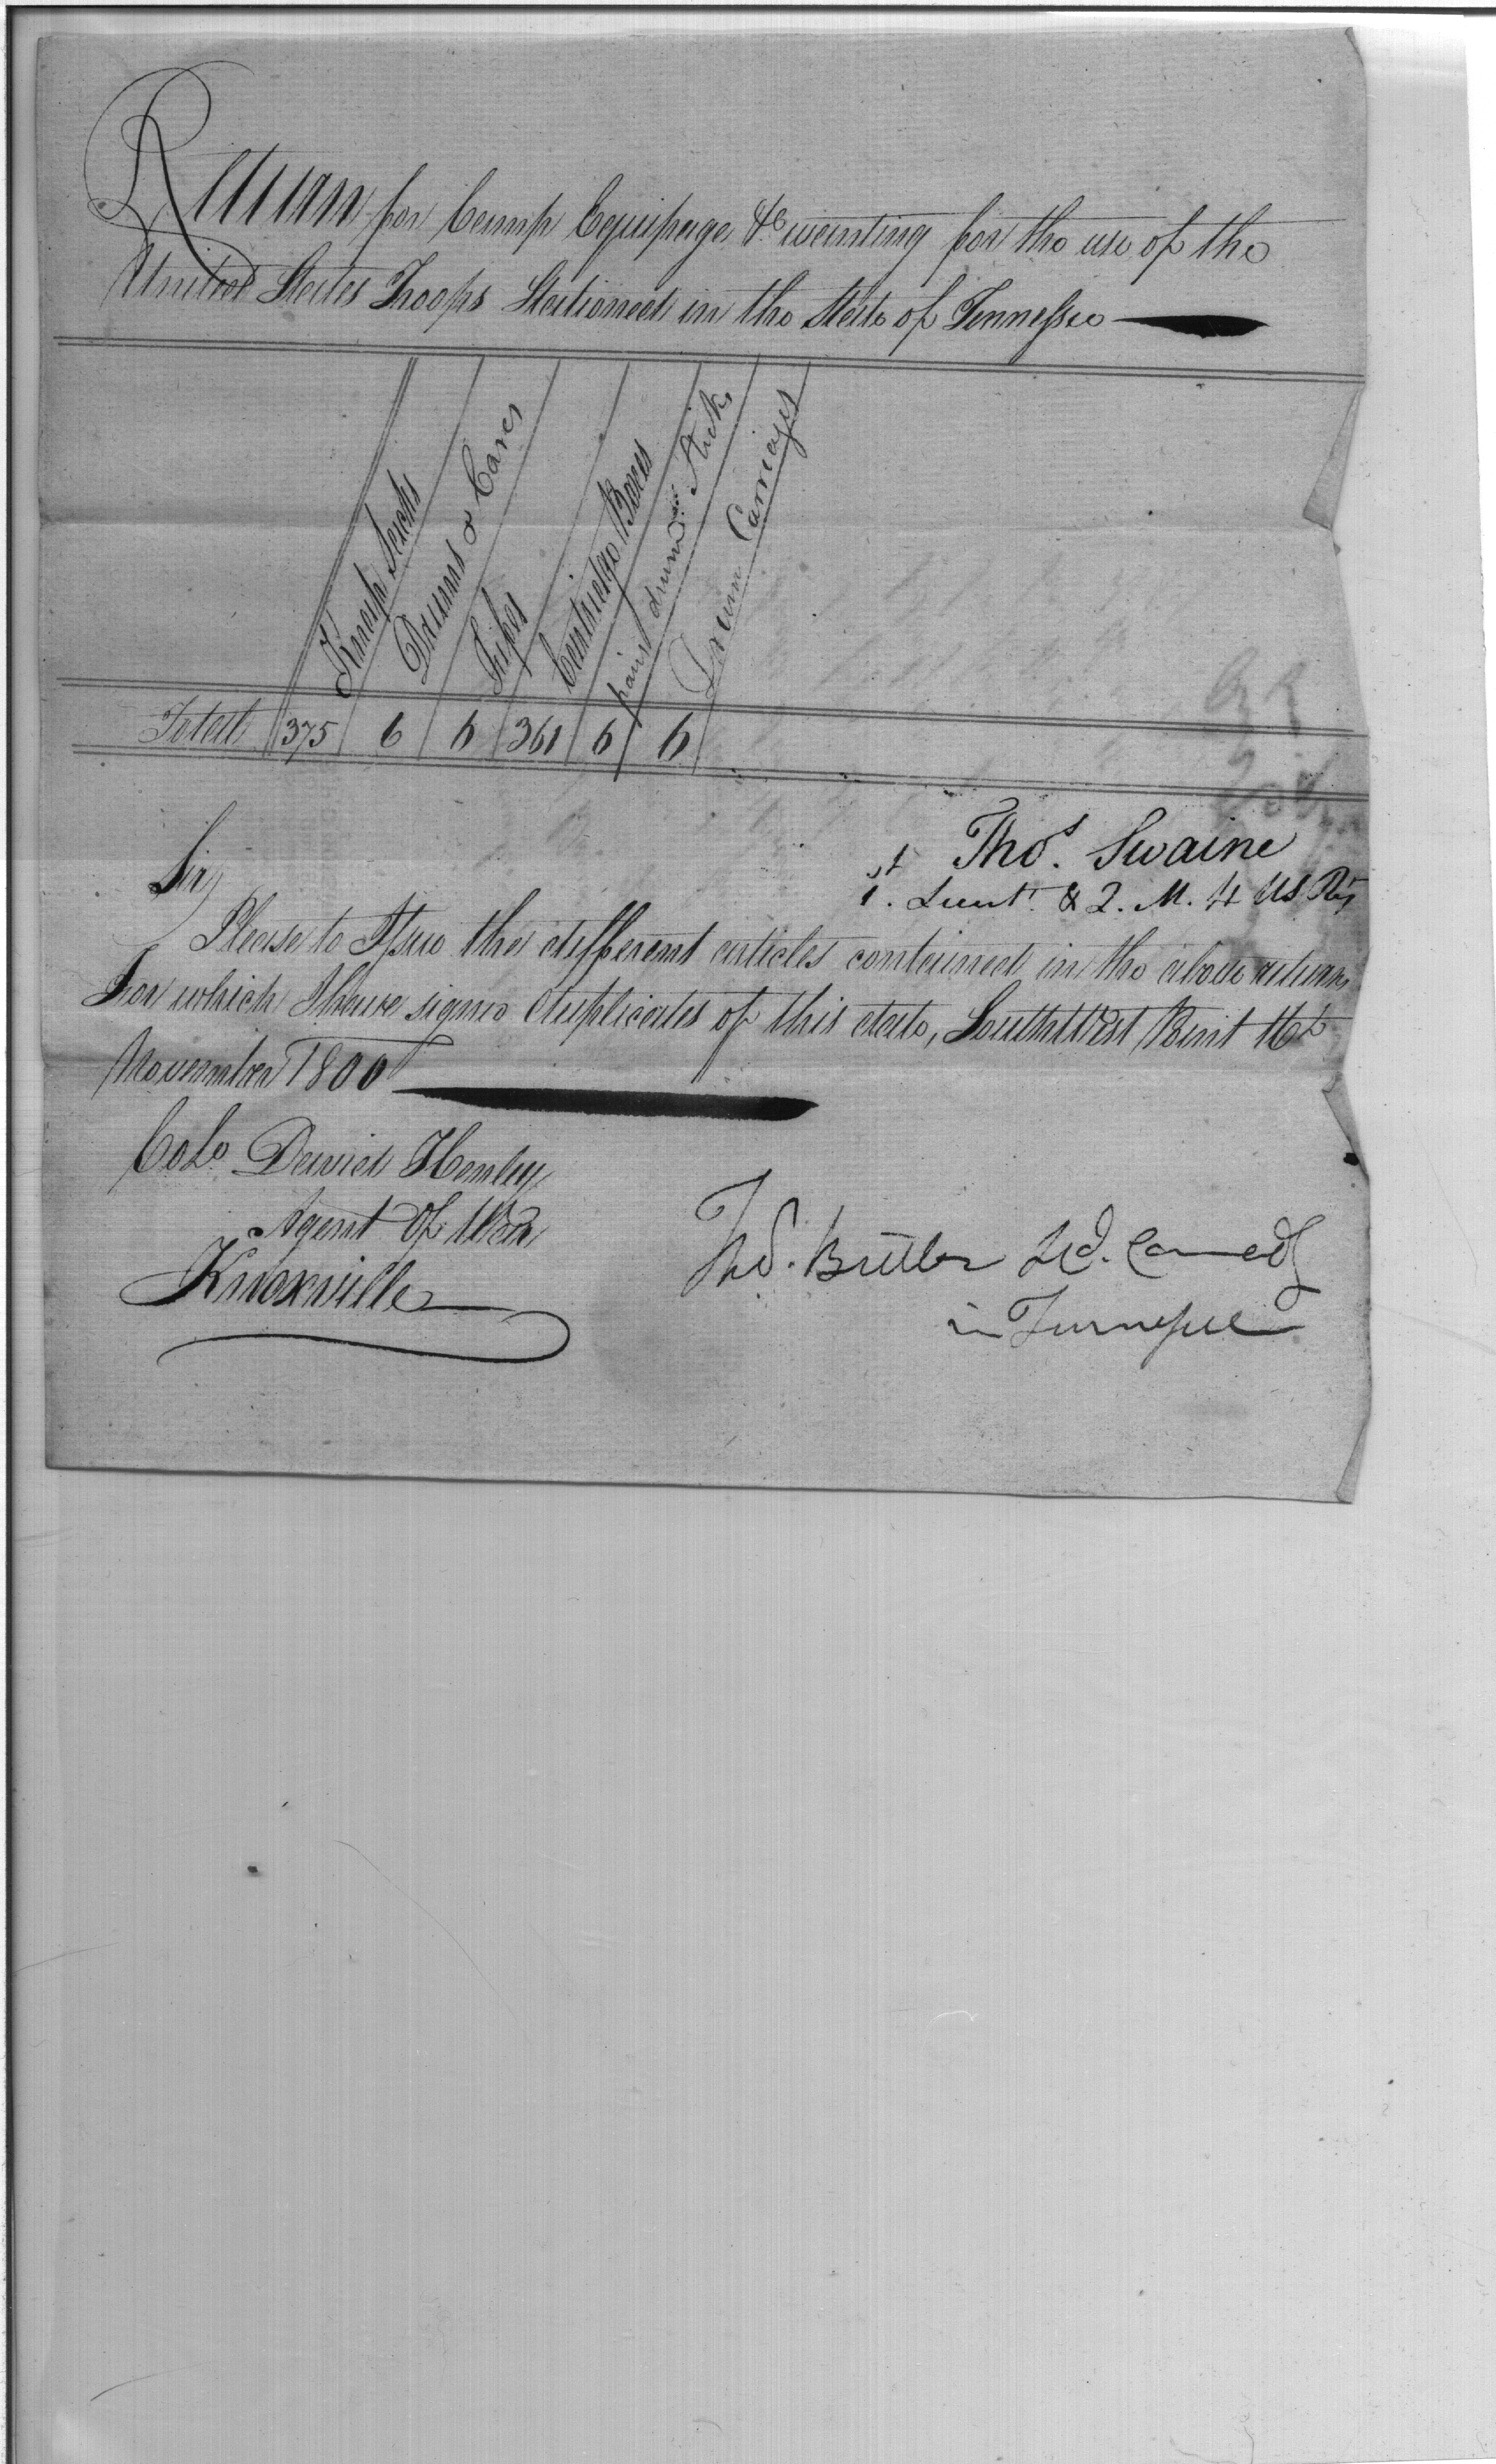 Return for Camp Equipage &c wanting for the use of the
United States Troops Stationed in the State of Tennessee
Knap Sacks
Drums & Cases
Fifes
Cartridge Boxes
pairs drum Sticks
Drum Carriages
Total 375 6 6 361 6 6
Thos. Swaine
1st Lieut. & Q. M. 4 US. Rt
Sir,
Please to Issue the different articles contained in the above return
For which I have signed duplicates of this date, South West Point 16th
November 1800
Colo David Henley
Agent Of War
Knoxville
Tho. Butler Lt. Comdg
in Tennessee